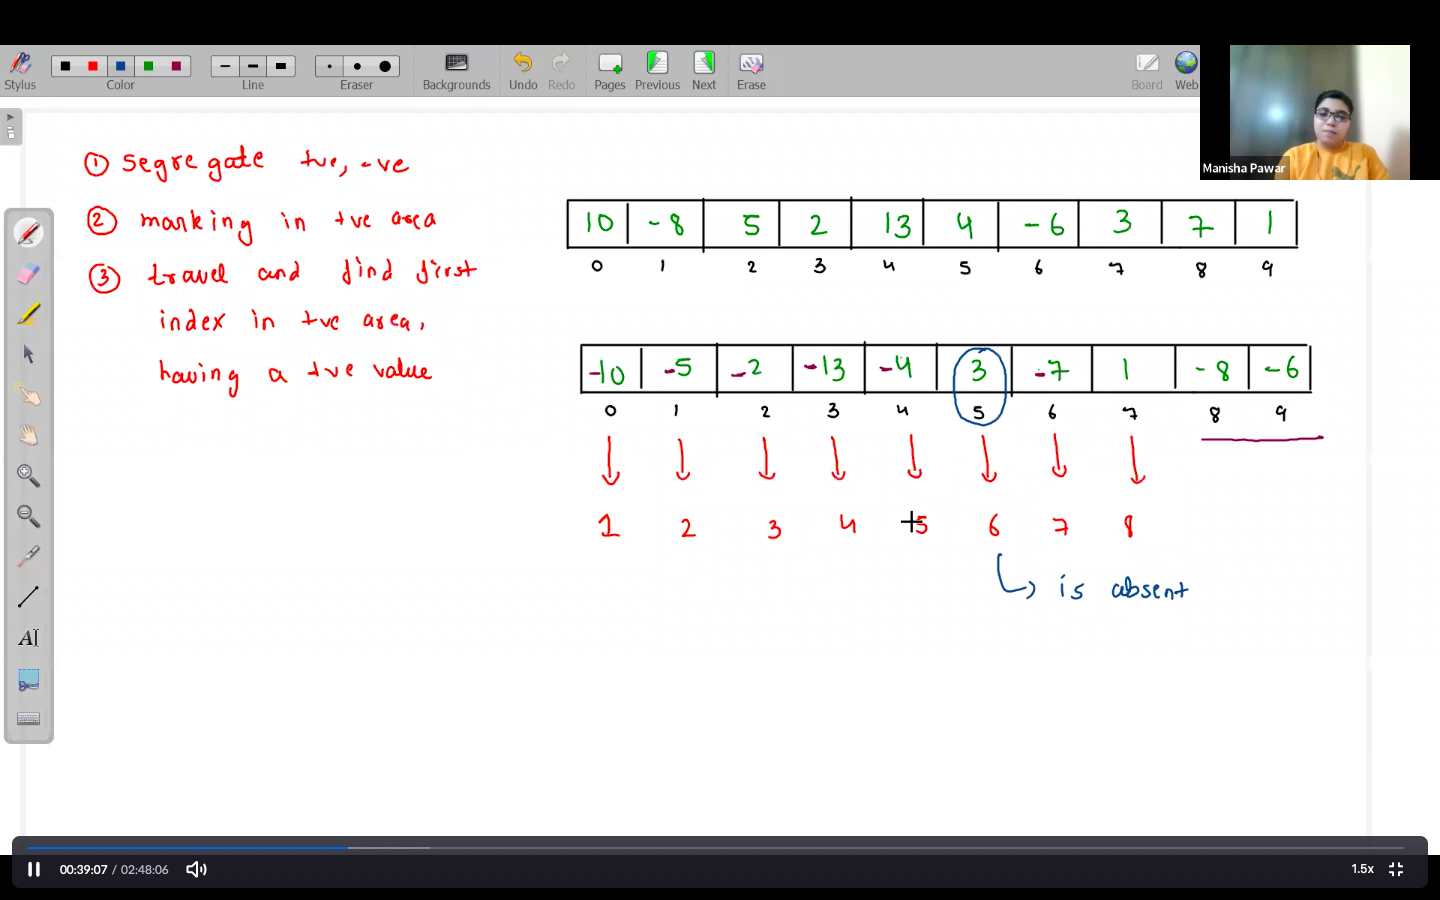 Stylus
Color
Line
Eraser
Backgrounds
Undo
Redo
Pages
Previous
Next
Erase
Board
Web
Manisha Pawar
① segregate +ve, -ve
② marking in +ve area
③ travel and find first
index in +ve area,
having a +ve value
10 -8 5 2 13 4 -6 3 7 1
0 1 2 3 4 5 6 7 8 9
-10 -5 -2 -13 -4 3 -7 1 -8 -6
0 1 2 3 4 5 6 7 8 9
1 2 3 4 5 6 7 8
is absent
AI
00:39:07 / 02:48:06
1.5x